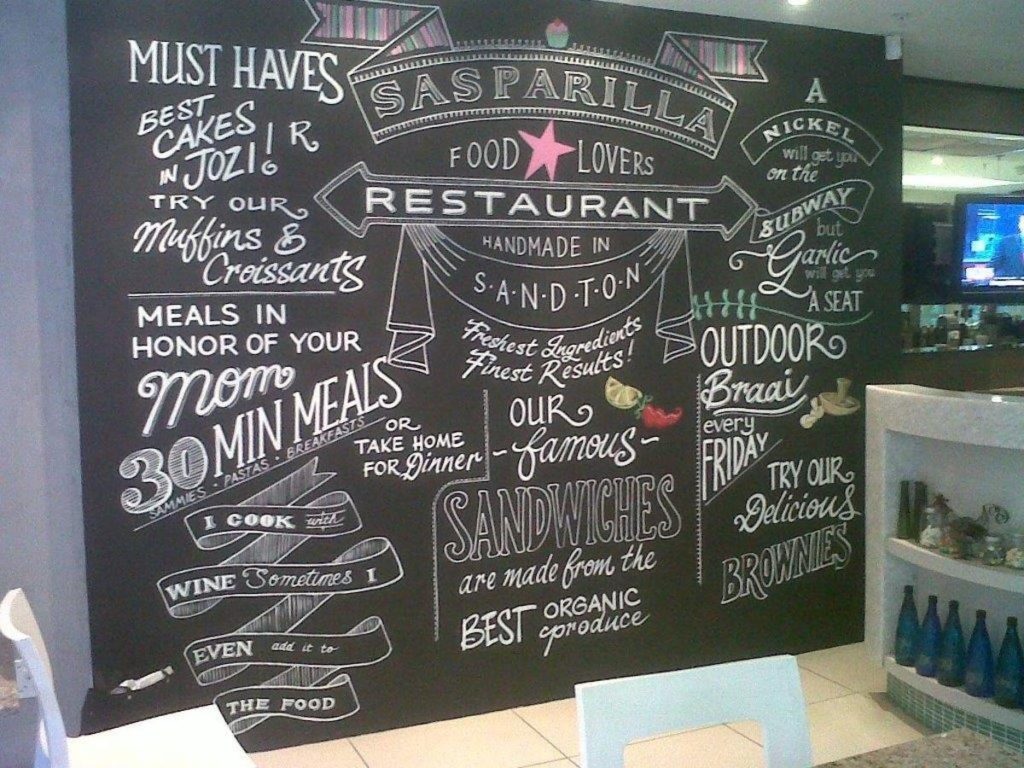 MUST HAVES
BEST
CAKES
IN JOZI! R
TRY OUR
Muffins &
Croissants
MEALS IN
HONOR OF YOUR
Mom
30 MIN MEALS
SAMMIES · PASTAS · BREAKFASTS
OR
TAKE HOME
FOR Dinner
I COOK with
WINE Sometimes I
EVEN add it to
THE FOOD
SASPARILLA
FOOD LOVERS
RESTAURANT
HANDMADE IN
S·A·N·D·T·O·N
Freshest Ingredients
Finest Results!
OUR
-famous-
SANDWICHES
are made from the
BEST ORGANIC
produce
A
NICKEL
will get you
on the
SUBWAY
but
Garlic
will get you
A SEAT
OUTDOOR
Braai
every
FRIDAY
TRY OUR
Delicious
BROWNIES